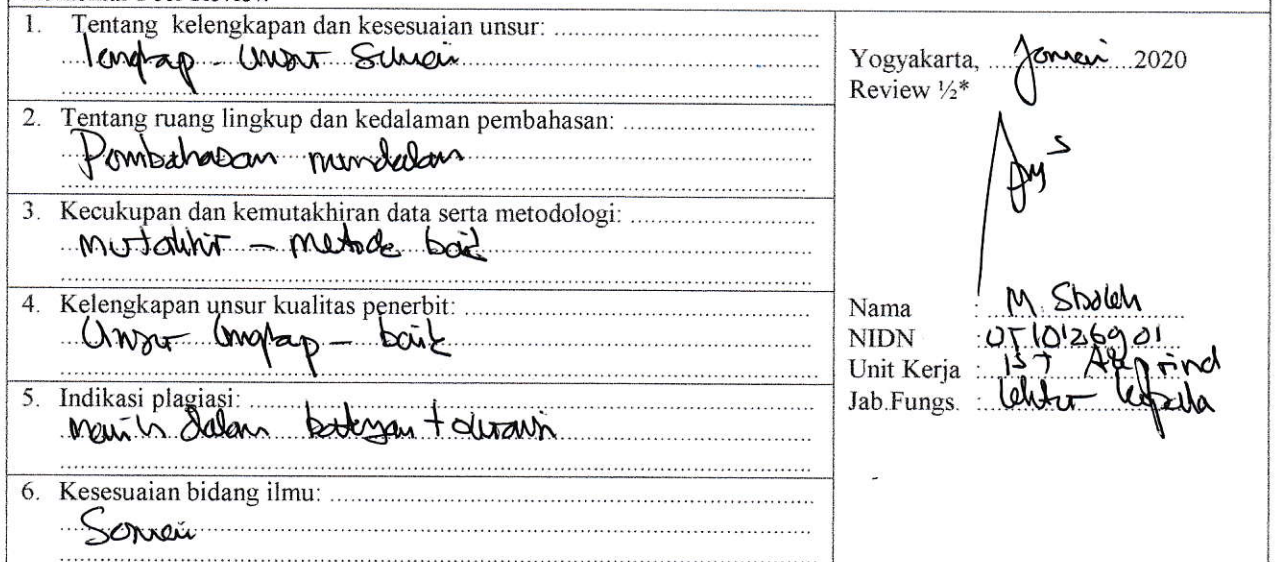 1. Tentang kelengkapan dan kesesuaian unsur:
lengkap - Unsur Sesuai
2. Tentang ruang lingkup dan kedalaman pembahasan:
Pembahasan mendalam
3. Kecukupan dan kemutakhiran data serta metodologi:
mutakhir - metode baik
4. Kelengkapan unsur kualitas penerbit:
Unsur lengkap - baik
5. Indikasi plagiasi:
masih dalam batasan toleransi
6. Kesesuaian bidang ilmu:
Sesuai
Yogyakarta, Januari 2020
Review ½*
Nama : M. Sholeh
NIDN : 0510126901
Unit Kerja : IST Akprind
Jab.Fungs. : Lektor kepala